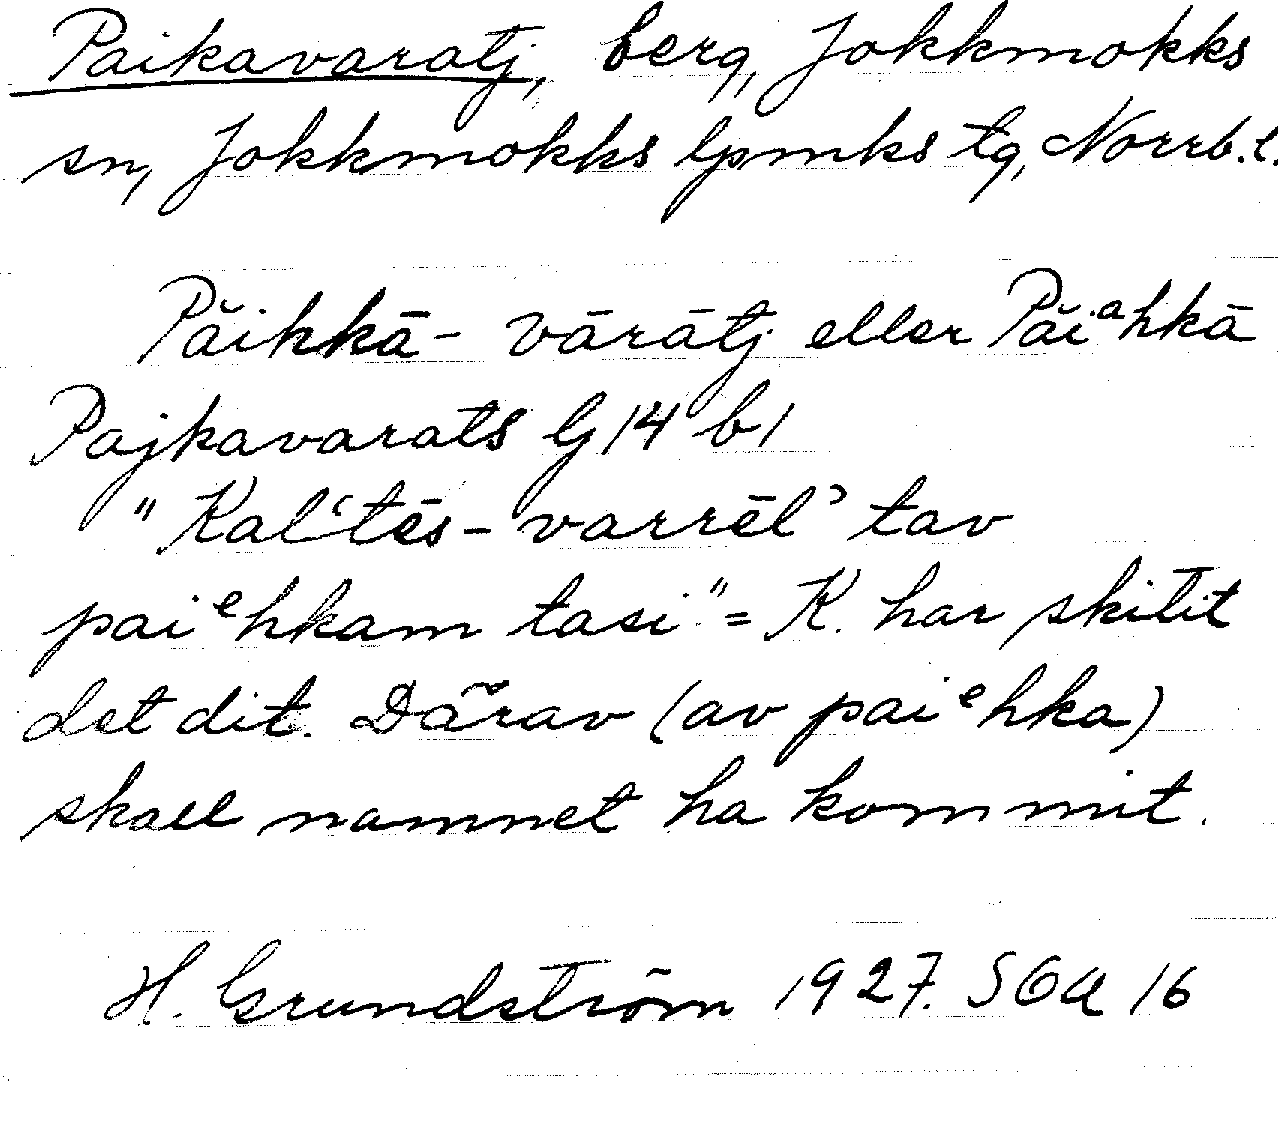 Paikavaratj, berg, Jokkmokks
sn, Jokkmokks lpmks tg, Norrb.l.
Păikkā-vārātj eller Păiᵃhkā
Pajkavarats G 14 b 1
"Kalʻtēs-varrēlʾ tav
paiᵉhkam tasi" = K. har skilit
det dit. Därav (av paiᵉhka)
skall namnet ha kommit.
H. Grundström 1927. SOA 16